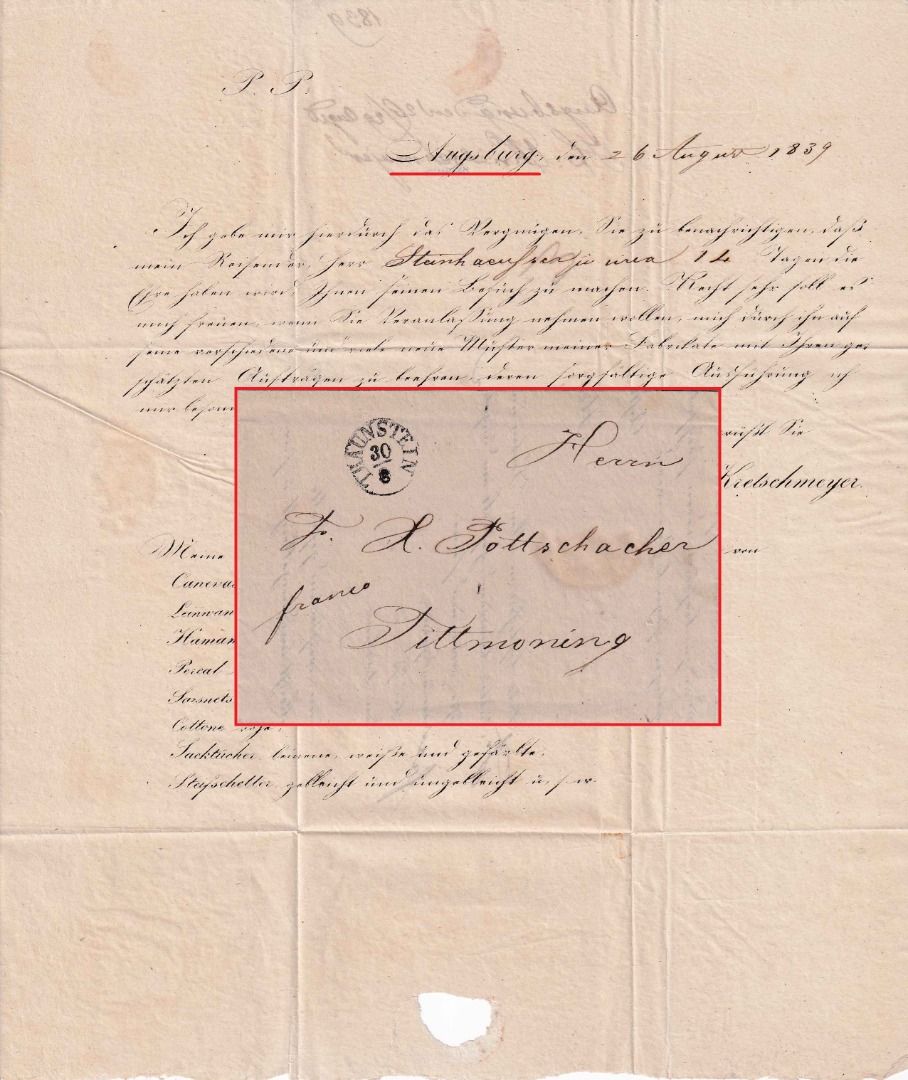 1839
P. P.
Augsburg, den 26 August 1839
Ich gebe mir hierdurch das Vergnügen, Sie zu benachrichtigen, daß
mein Reisender, Herr in circa 14 Tagen die
Ehre haben wird, Ihnen seinen Besuch zu machen. Recht sehr soll es
mich freuen, wenn Sie Veranlassung nehmen wollen, mich durch ihn auf
seine verschiedene und viele neue Muster meiner Fabrikate mit Ihren ge,
schätzten Aufträgen zu beehren, deren sorgfältige Ausführung ich
mir
Sie
Kretschmeyer.
Meine von
Canevas
Leinwan
Haman
Percal
Sarsnets
Cottone
Sacktücher, leinene, weiße und gefärbte,
gebleicht und ungebleicht u. s. w.
TRAUNSTEIN
30
8
Herrn
F. X. Pöttschacher
franco
Tittmoning